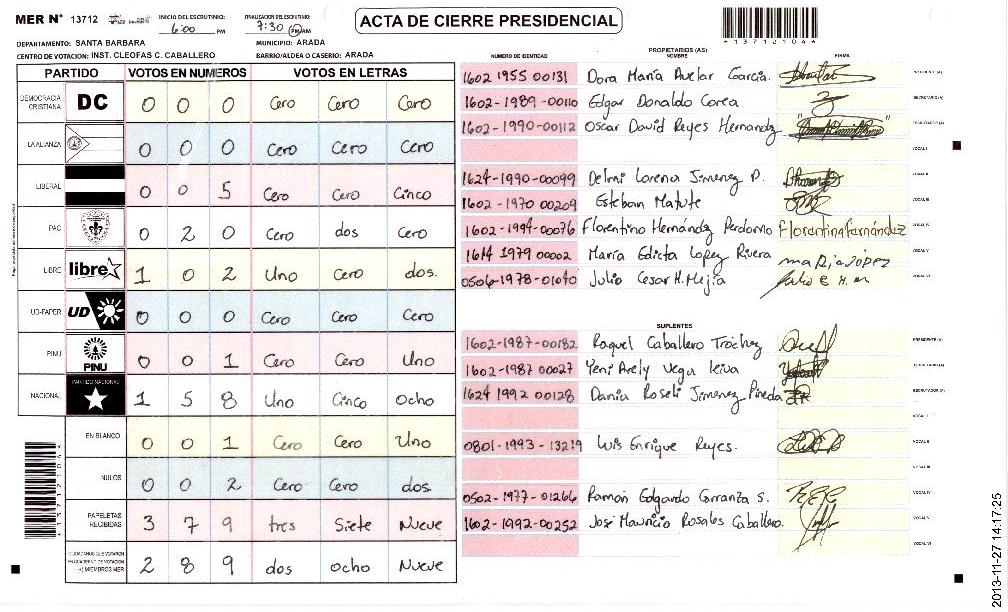 MER N° 13712 INICIO DEL ESCRUTINIO: 6:00 PM FINALIZACION DEL ESCRUTINIO: 7:30 PM AM
ACTA DE CIERRE PRESIDENCIAL
*13712104*
DEPARTAMENTO: SANTA BARBARA MUNICIPIO: ARADA
CENTRO DE VOTACION: INST. CLEOFAS C. CABALLERO BARRIO/ALDEA O CASERIO: ARADA
PARTIDO VOTOS EN NUMEROS VOTOS EN LETRAS
DEMOCRACIA CRISTIANA DC 0 0 0 Cero Cero Cero
LA ALIANZA 0 0 0 Cero Cero Cero
LIBERAL 0 0 5 Cero Cero Cinco
PAC 0 2 0 Cero dos Cero
LIBRE libre 1 0 2 Uno Cero dos.
UD-FAPER UD 0 0 0 Cero Cero Cero
PINU PINU 0 0 1 Cero Cero Uno
NACIONAL PARTIDO NACIONAL 1 5 8 Uno Cinco Ocho
EN BLANCO 0 0 1 Cero Cero Uno
NULOS 0 0 2 Cero Cero dos
PAPELETAS RECIBIDAS 3 7 9 tres Siete Nueve
CIUDADANOS QUE VOTARON EN CUADERNO DE VOTACION (+) MIEMBROS MER 2 8 9 dos ocho Nueve
*13712104*
PROPIETARIOS (AS)
NUMERO DE IDENTIDAD NOMBRE FIRMA
1602 1955 00131 Dora María Avelar Garcia. PRESIDENTE (A)
1602-1989-00110 Edgar Donaldo Corea SECRETARIO (A)
1602-1990-00112 Oscar David Reyes Hernandz ESCRUTADOR (A)
VOCAL I
1624-1990-00099 Delmi Lorena Jimenez P. VOCAL II
1602-1970 00209 Esteban Matute VOCAL III
1602-1994-00076 Florentino Hernández Perdomo VOCAL IV
1614 1979 00002 María Edicta Lopez Rivera maria lópez VOCAL V
0506-1978-01040 Julio Cesar H. Mejía Julio C H. M VOCAL VI
SUPLENTES
1602-1987-00182 Raquel Caballero Tróchez PRESIDENTE (A)
1602-1987 00027 Yeni Arely Vega Leiva SECRETARIO (A)
1624 1992 00128 Dania Roseli Jimenez Pineda ESCRUTADOR (A)
VOCAL I
0801-1993-13219 Luis Enrique Reyes. VOCAL II
VOCAL III
0502-1977-01266 Ramon Edgardo Carranza S. VOCAL IV
1602-1992-00252 José Mauricio Rosales Caballero. VOCAL V
VOCAL VI
2013-11-27 14:17:25